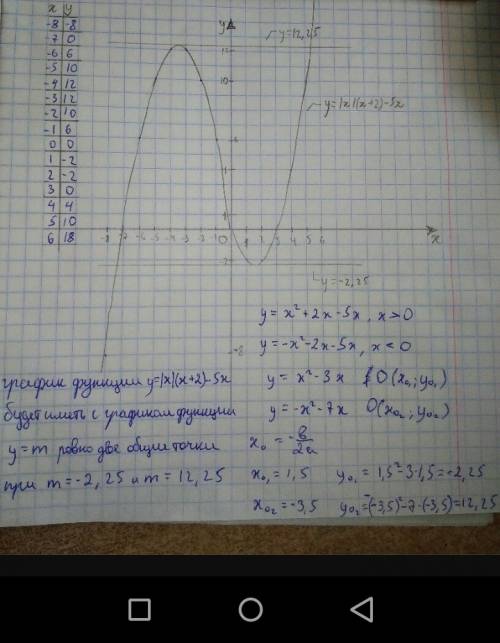 x y
-8 -8
-7 0
-6 6
-5 10
-4 12
-3 12
-2 10
-1 6
0 0
1 -2
2 -2
3 0
4 4
5 10
6 18
y
y=12,25
12
10
y=|x|(x+2)-5x
6
4
1
-8 -7 -6 -5 -4 -3 -2 -1 0 1 2 3 4 5 6
x
-2
y=-2,25
-8
y = x²+2x-5x, x>0
y = -x²-2x-5x, x<0
график функции y=|x|(x+2)-5x
будет иметь с графиком функции
y=m ровно две общие точки
при m=-2,25 и m=12,25
y = x²-3x O(x₀₁; y₀₁)
y = -x²-7x O(x₀₂; y₀₂)
x₀ = -b/2a
x₀₁ = 1,5 y₀₁ = 1,5²-3·1,5=-2,25
x₀₂ = -3,5 y₀₂=-(-3,5)²-7·(-3,5)=12,25